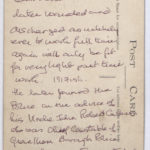 later wounded and
discharged as unlikely
ever to work full time
again will only be fit
for very light part time
work. 1917/1918.
He later joined the
Police on the advice of
his Uncle John Robert
who was Chief Constable of
Grantham Borough Police
POST CARD